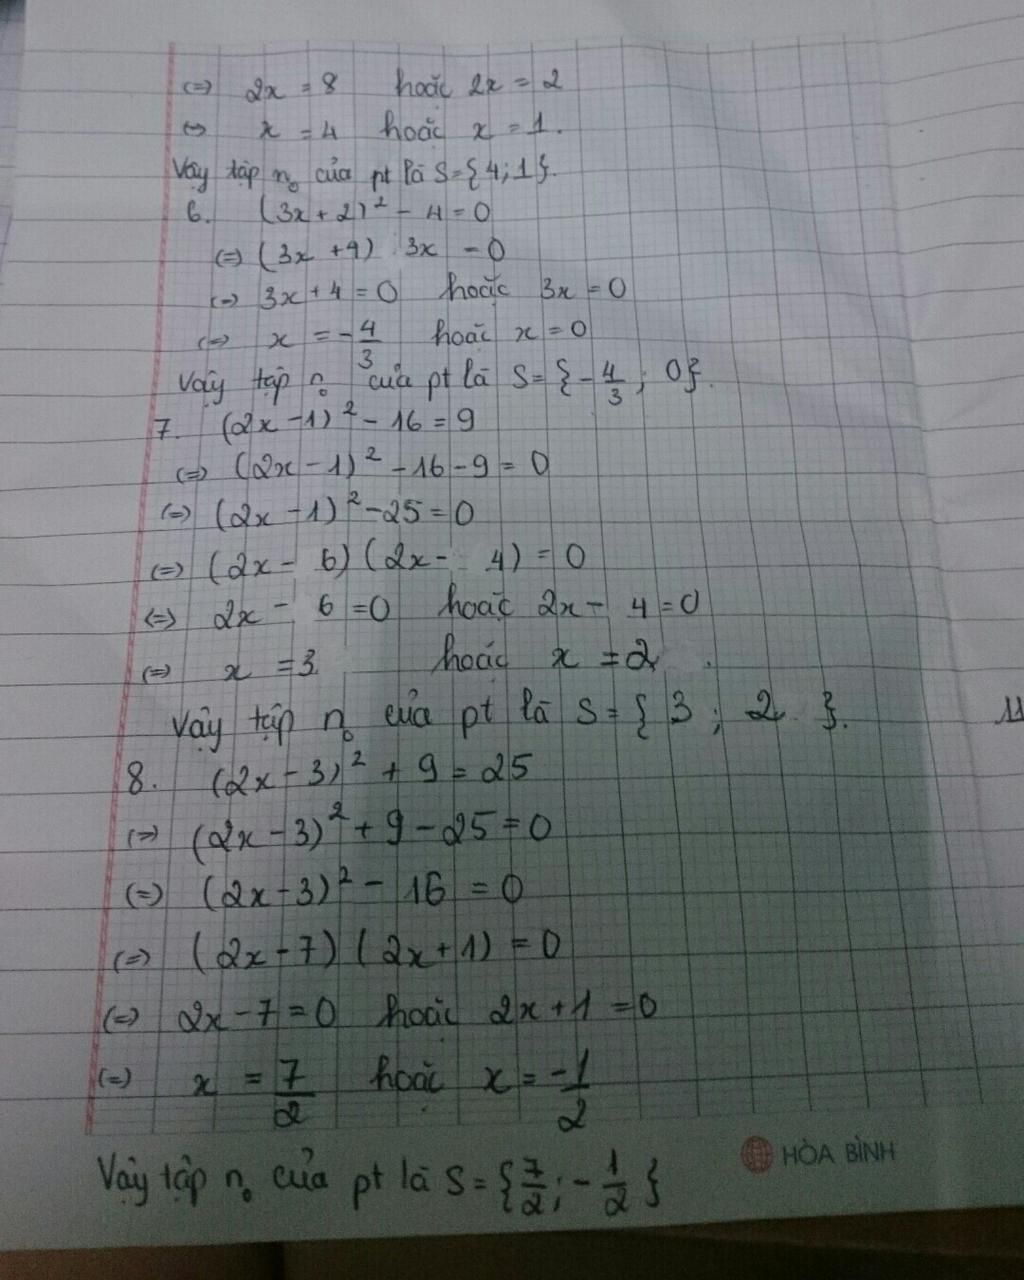 (=) 2x = 8 hoặc 2x = 2
(=) x = 4 hoặc x = 1.
Vậy tập n₀ của pt là S={4;1}.
6. (3x+2)² - 4 = 0
(=) (3x+4) 3x = 0
(=) 3x+4=0 hoặc 3x=0
(=) x = -4/3 hoặc x=0
Vậy tập n₀ của pt là S={-4/3; 0}.
7. (2x-1)² - 16 = 9
(=) (2x-1)² -16-9 = 0
(=) (2x-1)²-25=0
(=) (2x- 6)(2x- 4) = 0
(=) 2x - 6=0 hoặc 2x- 4=0
(=) x = 3 hoặc x = 2.
Vậy tập n₀ của pt là S={ 3; 2 }.
8. (2x-3)² + 9 = 25
(=) (2x-3)²+9-25=0
(=) (2x-3)² - 16 = 0
(=) (2x-7)(2x+1)=0
(=) 2x-7=0 hoặc 2x+1=0
(=) x = 7/2 hoặc x = -1/2
HÒA BÌNH
Vậy tập n₀ của pt là S={7/2;-1/2}